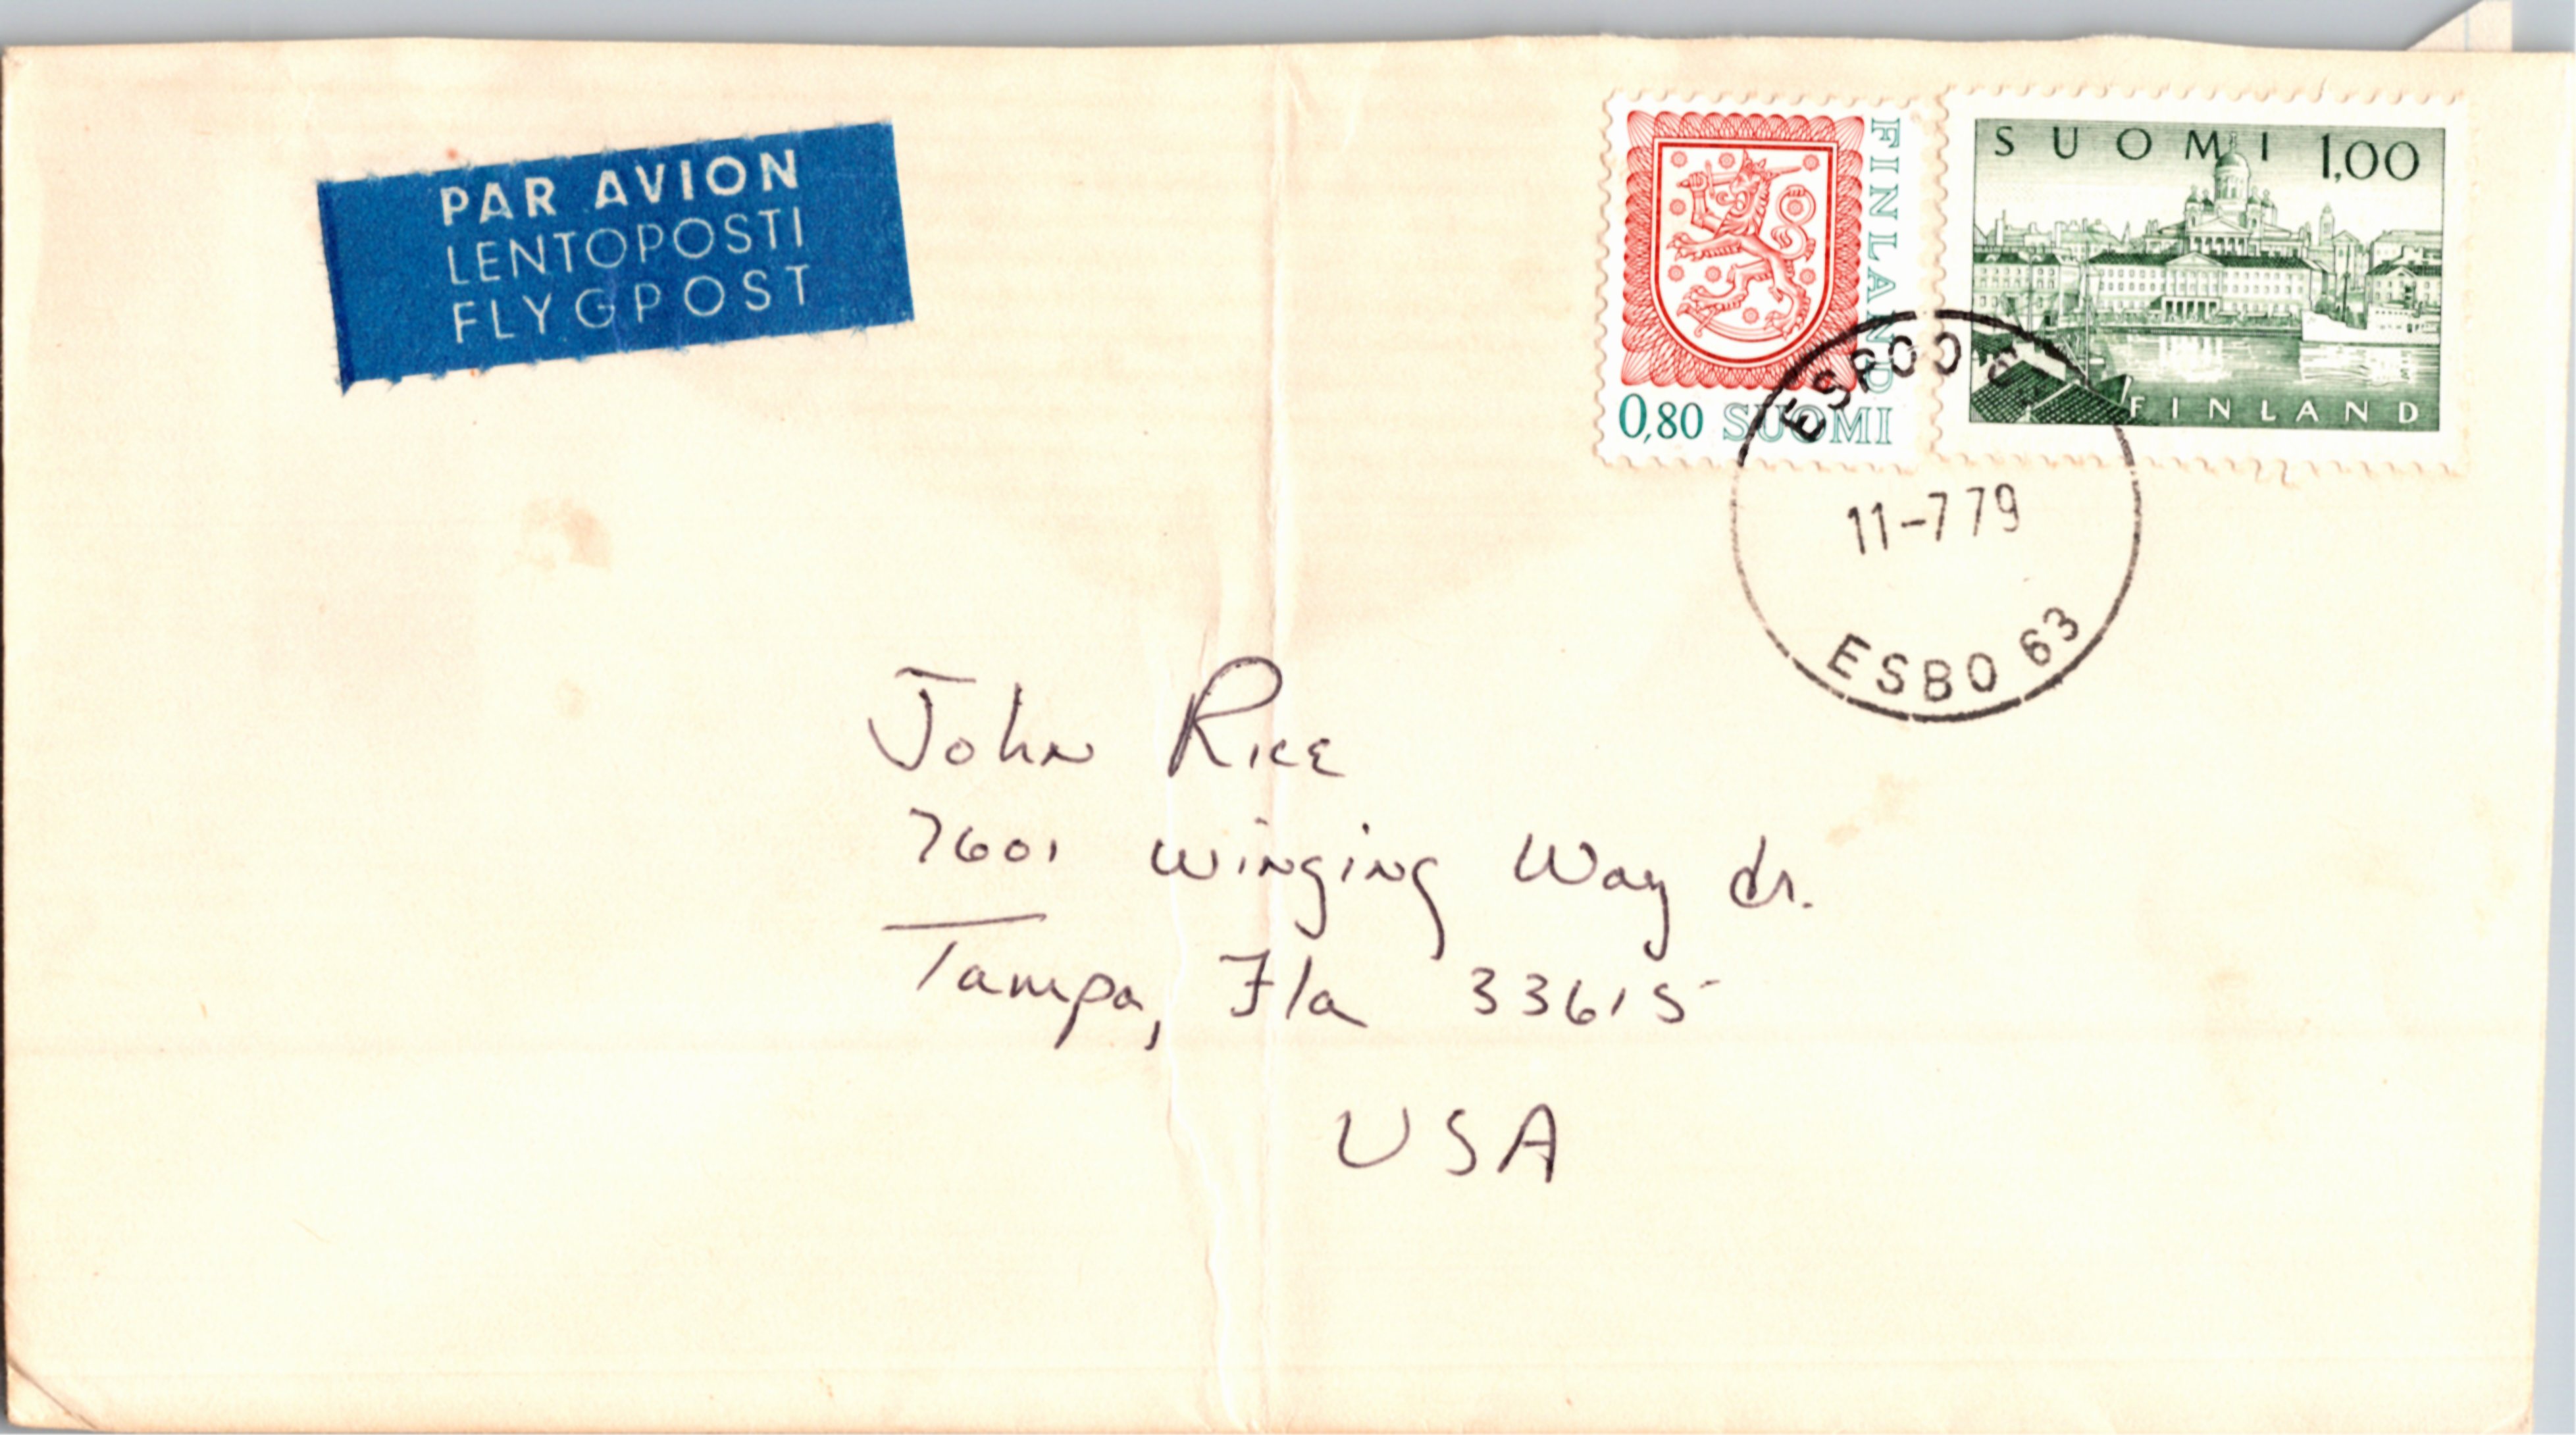 PAR AVION
LENTOPOSTI
FLYGPOST
FINLAND
0,80 SUOMI
SUOMI 1,00
FINLAND
ESPOO
11-7 79
ESBO 63
John Rice
7601 Winging Way dr.
Tampa, Fla 33615
USA